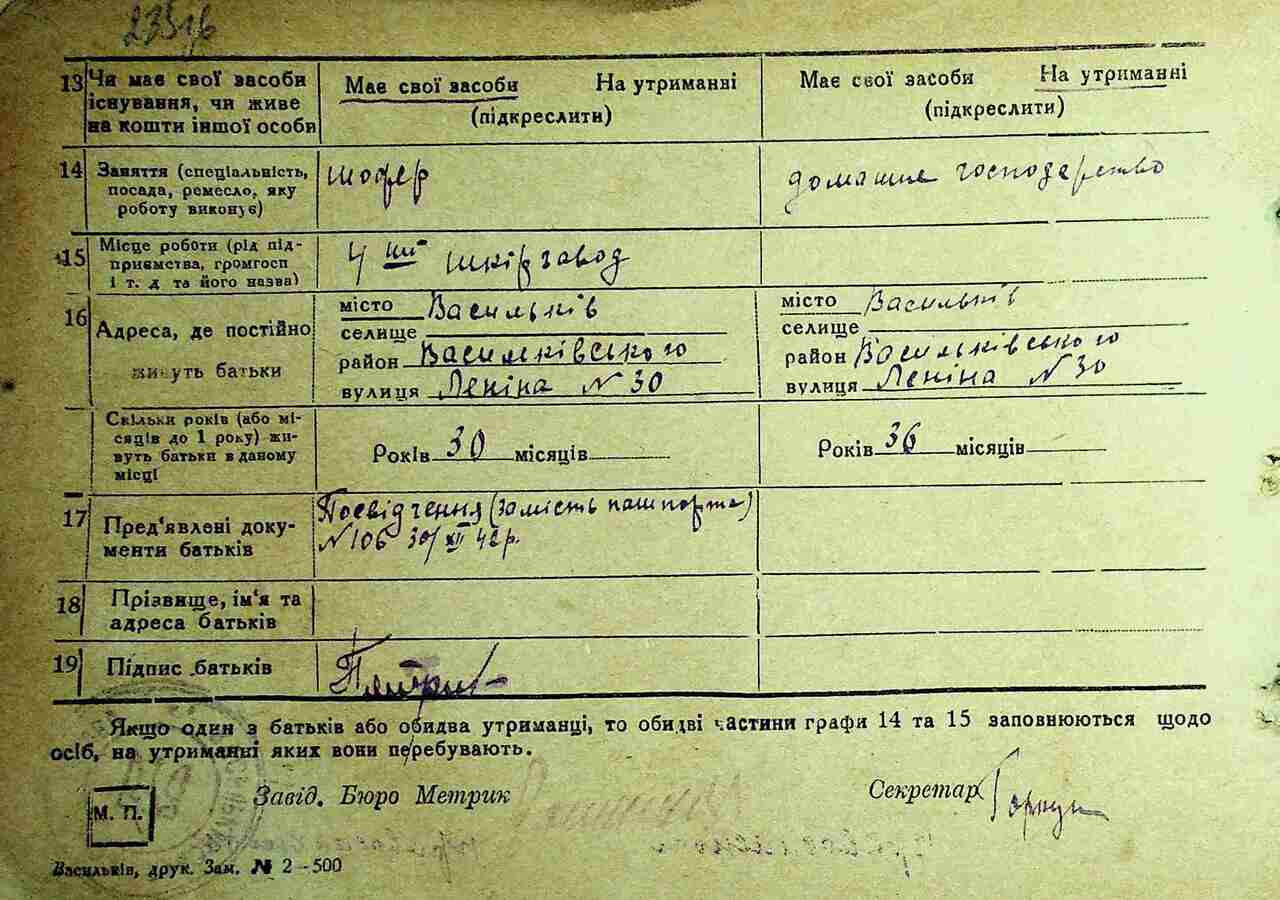 13 Чи має свої засоби існування, чи живе на кошти іншої особи
Має свої засоби На утриманні
(підкреслити)
Має свої засоби На утриманні
(підкреслити)
14 Заняття (спеціальність, посада, ремесло, яку роботу виконує)
шофер
домашнє господарство
15 Місце роботи (рід підприємства, громгосп і т. д та його назва)
4 ий шкірзавод
16 Адреса, де постійно живуть батьки
місто Васильків
селище
район Васильківського
вулиця Леніна № 30
місто Васильків
селище
район Васильківського
вулиця Леніна № 30
Скільки років (або місяців до 1 року) живуть батьки в даному місці
Років 30 місяців
Років 36 місяців
17 Пред'явлені документи батьків
Посвідчення (замість пашпорта)
№ 106 30/XII 42 р.
18 Прізвище, ім'я та адреса батьків
19 Підпис батьків
Якщо один з батьків або обидва утриманці, то обидві частини графи 14 та 15 заповнюються щодо
осіб, на утриманні яких вони перебувають.
М. П.
Завід. Бюро Метрик
Секретар
Васильків, друк. Зам. № 2-500